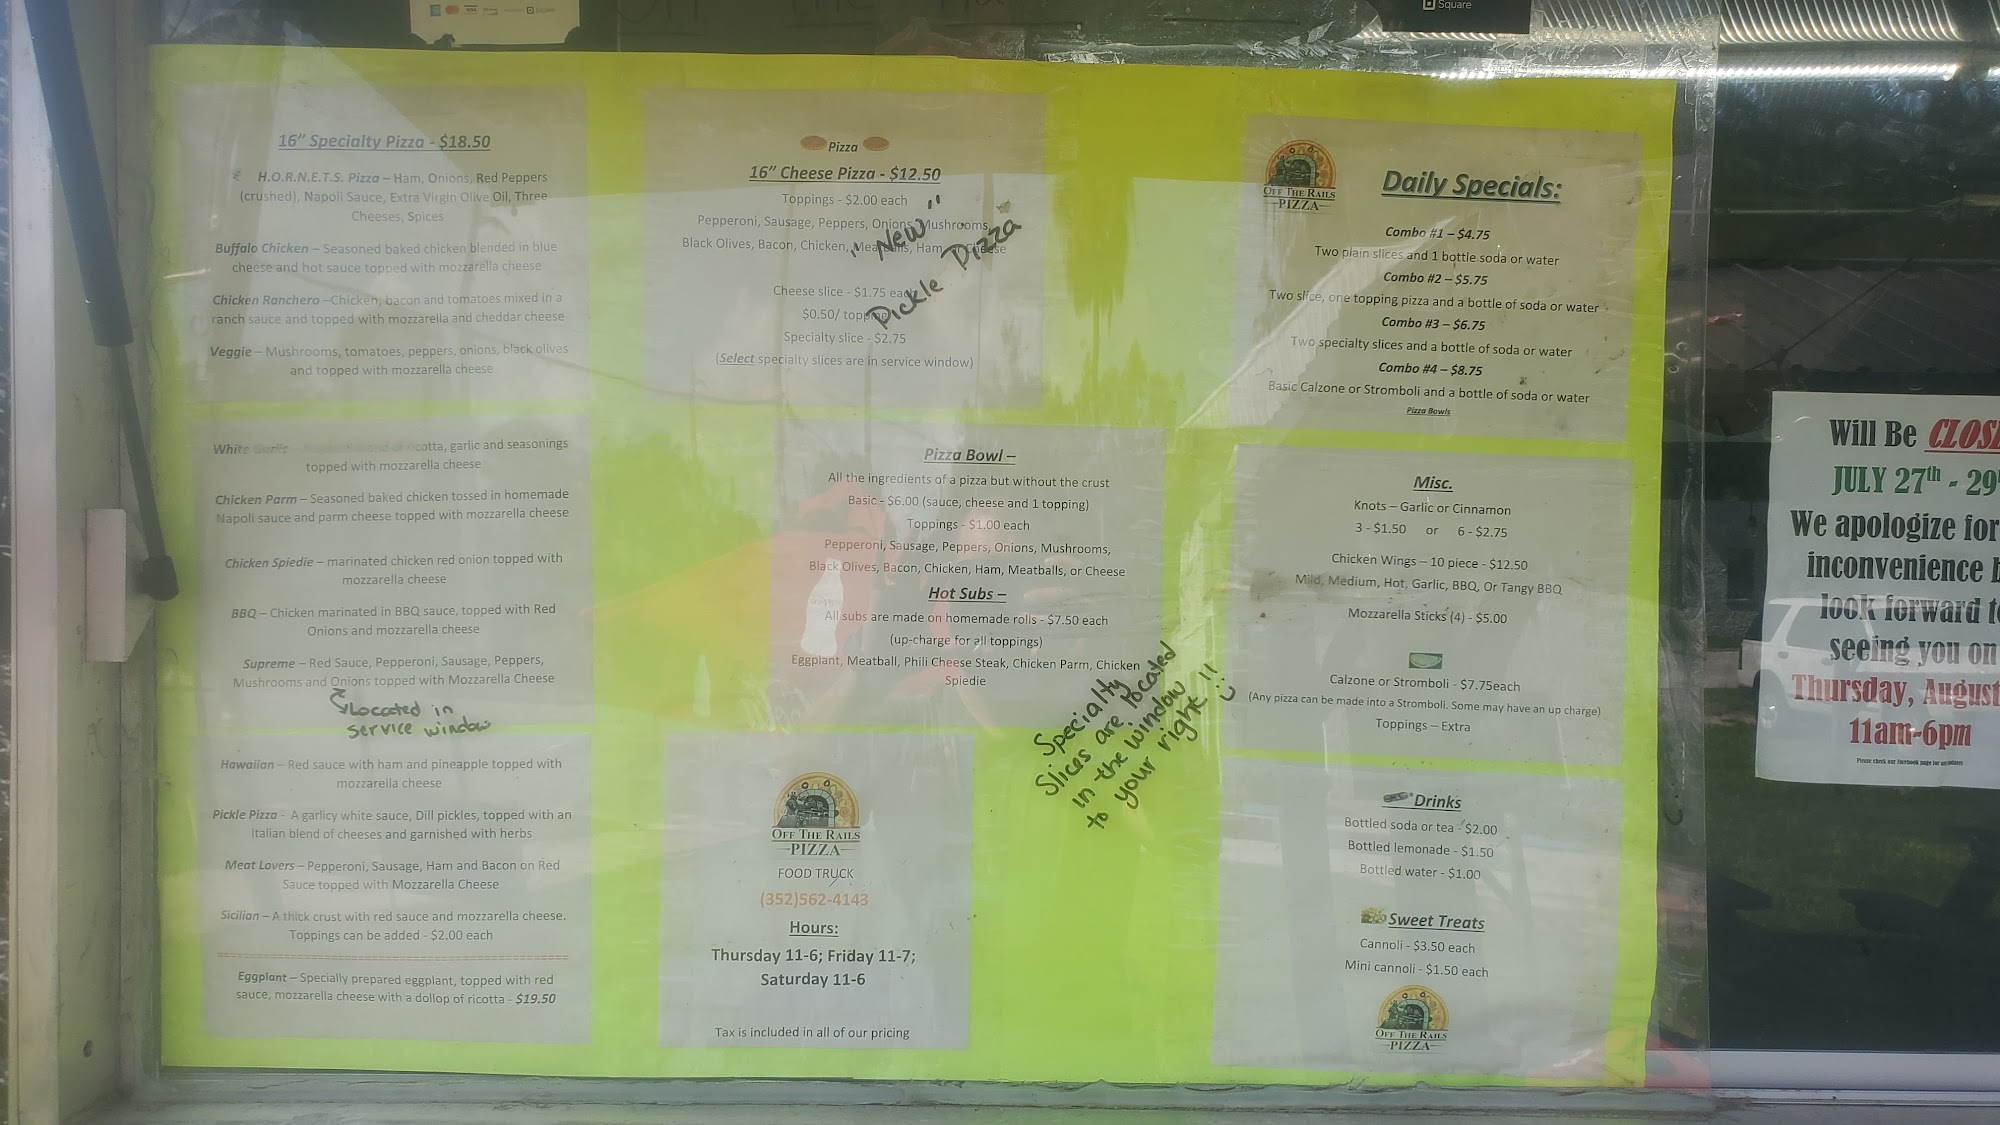 Square
Square
16" Specialty Pizza - $18.50
H.O.R.N.E.T.S. Pizza – Ham, Onions, Red Peppers
(crushed), Napoli Sauce, Extra Virgin Olive Oil, Three
Cheeses, Spices
Buffalo Chicken – Seasoned baked chicken blended in blue
cheese and hot sauce topped with mozzarella cheese
Chicken Ranchero –Chicken, bacon and tomatoes mixed in a
ranch sauce and topped with mozzarella and cheddar cheese
Veggie – Mushrooms, tomatoes, peppers, onions, black olives
and topped with mozzarella cheese
White Garlic – ricotta, garlic and seasonings
topped with mozzarella cheese
Chicken Parm – Seasoned baked chicken tossed in homemade
Napoli sauce and parm cheese topped with mozzarella cheese
Chicken Spiedie – marinated chicken red onion topped with
mozzarella cheese
BBQ – Chicken marinated in BBQ sauce, topped with Red
Onions and mozzarella cheese
Supreme – Red Sauce, Pepperoni, Sausage, Peppers,
Mushrooms and Onions topped with Mozzarella Cheese
Located in
service window
Hawaiian – Red sauce with ham and pineapple topped with
mozzarella cheese
Pickle Pizza - A garlicy white sauce, Dill pickles, topped with an
Italian blend of cheeses and garnished with herbs
Meat Lovers – Pepperoni, Sausage, Ham and Bacon on Red
Sauce topped with Mozzarella Cheese
Sicilian – A thick crust with red sauce and mozzarella cheese.
Toppings can be added - $2.00 each
Eggplant – Specially prepared eggplant, topped with red
sauce, mozzarella cheese with a dollop of ricotta - $19.50
Pizza
16" Cheese Pizza - $12.50
Toppings - $2.00 each
Pepperoni, Sausage, Peppers, Onions, Mushrooms,
Black Olives, Bacon, Chicken, Meatballs, Ham Cheese
Cheese slice - $1.75 each
$0.50/ topping
Specialty slice - $2.75
(Select specialty slices are in service window)
"New"
Pickle Pizza
Pizza Bowl –
All the ingredients of a pizza but without the crust
Basic - $6.00 (sauce, cheese and 1 topping)
Toppings - $1.00 each
Pepperoni, Sausage, Peppers, Onions, Mushrooms,
Black Olives, Bacon, Chicken, Ham, Meatballs, or Cheese
Hot Subs –
All subs are made on homemade rolls - $7.50 each
(up-charge for all toppings)
Eggplant, Meatball, Phili Cheese Steak, Chicken Parm, Chicken
Spiedie
Specialty
Slices are located
in the window
to your right!!
OFF THE RAILS
PIZZA
FOOD TRUCK
(352)562-4143
Hours:
Thursday 11-6; Friday 11-7;
Saturday 11-6
Tax is included in all of our pricing
OFF THE RAILS
PIZZA
Daily Specials:
Combo #1 – $4.75
Two plain slices and 1 bottle soda or water
Combo #2 – $5.75
Two slice, one topping pizza and a bottle of soda or water
Combo #3 – $6.75
Two specialty slices and a bottle of soda or water
Combo #4 – $8.75
Basic Calzone or Stromboli and a bottle of soda or water
Pizza Bowls
Misc.
Knots – Garlic or Cinnamon
3 - $1.50 or 6 - $2.75
Chicken Wings – 10 piece - $12.50
Mild, Medium, Hot, Garlic, BBQ, Or Tangy BBQ
Mozzarella Sticks (4) - $5.00
Calzone or Stromboli - $7.75each
(Any pizza can be made into a Stromboli. Some may have an up charge)
Toppings – Extra
Drinks
Bottled soda or tea - $2.00
Bottled lemonade - $1.50
Bottled water - $1.00
Sweet Treats
Cannoli - $3.50 each
Mini cannoli - $1.50 each
OFF THE RAILS
PIZZA
Will Be CLOSE
JULY 27th - 29
We apologize for
inconvenience b
look forward to
seeing you on
Thursday, August
11am-6pm
Please check our Facebook page for updates